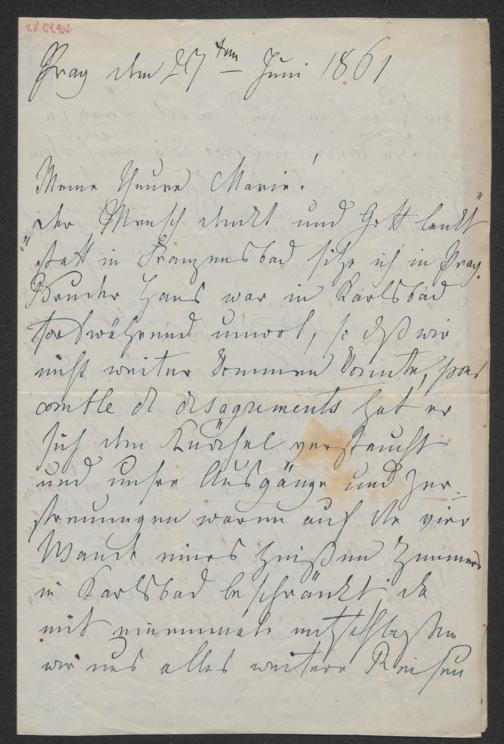 I.N.129.962
Prag den 27ten Juni 1861
Meine theure Marie!
"der Mensch denkt und Gott lenkt"
statt in Franzensbad sitze ich in Prag.
Bruder Hans war in Karlsbad
fortwährend unwol, so daß wir
nicht weiter kommen konnte, par
comble de desagrements hat er
sich den Knöchel verstaucht
und unsre Ausgänge und Zer-
streuungen waren auf die vier
Wände eines heißen Zimmers
in Karlsbad beschränkt da
mit einemmale entschloßen
wir uns alles weitere Reisen